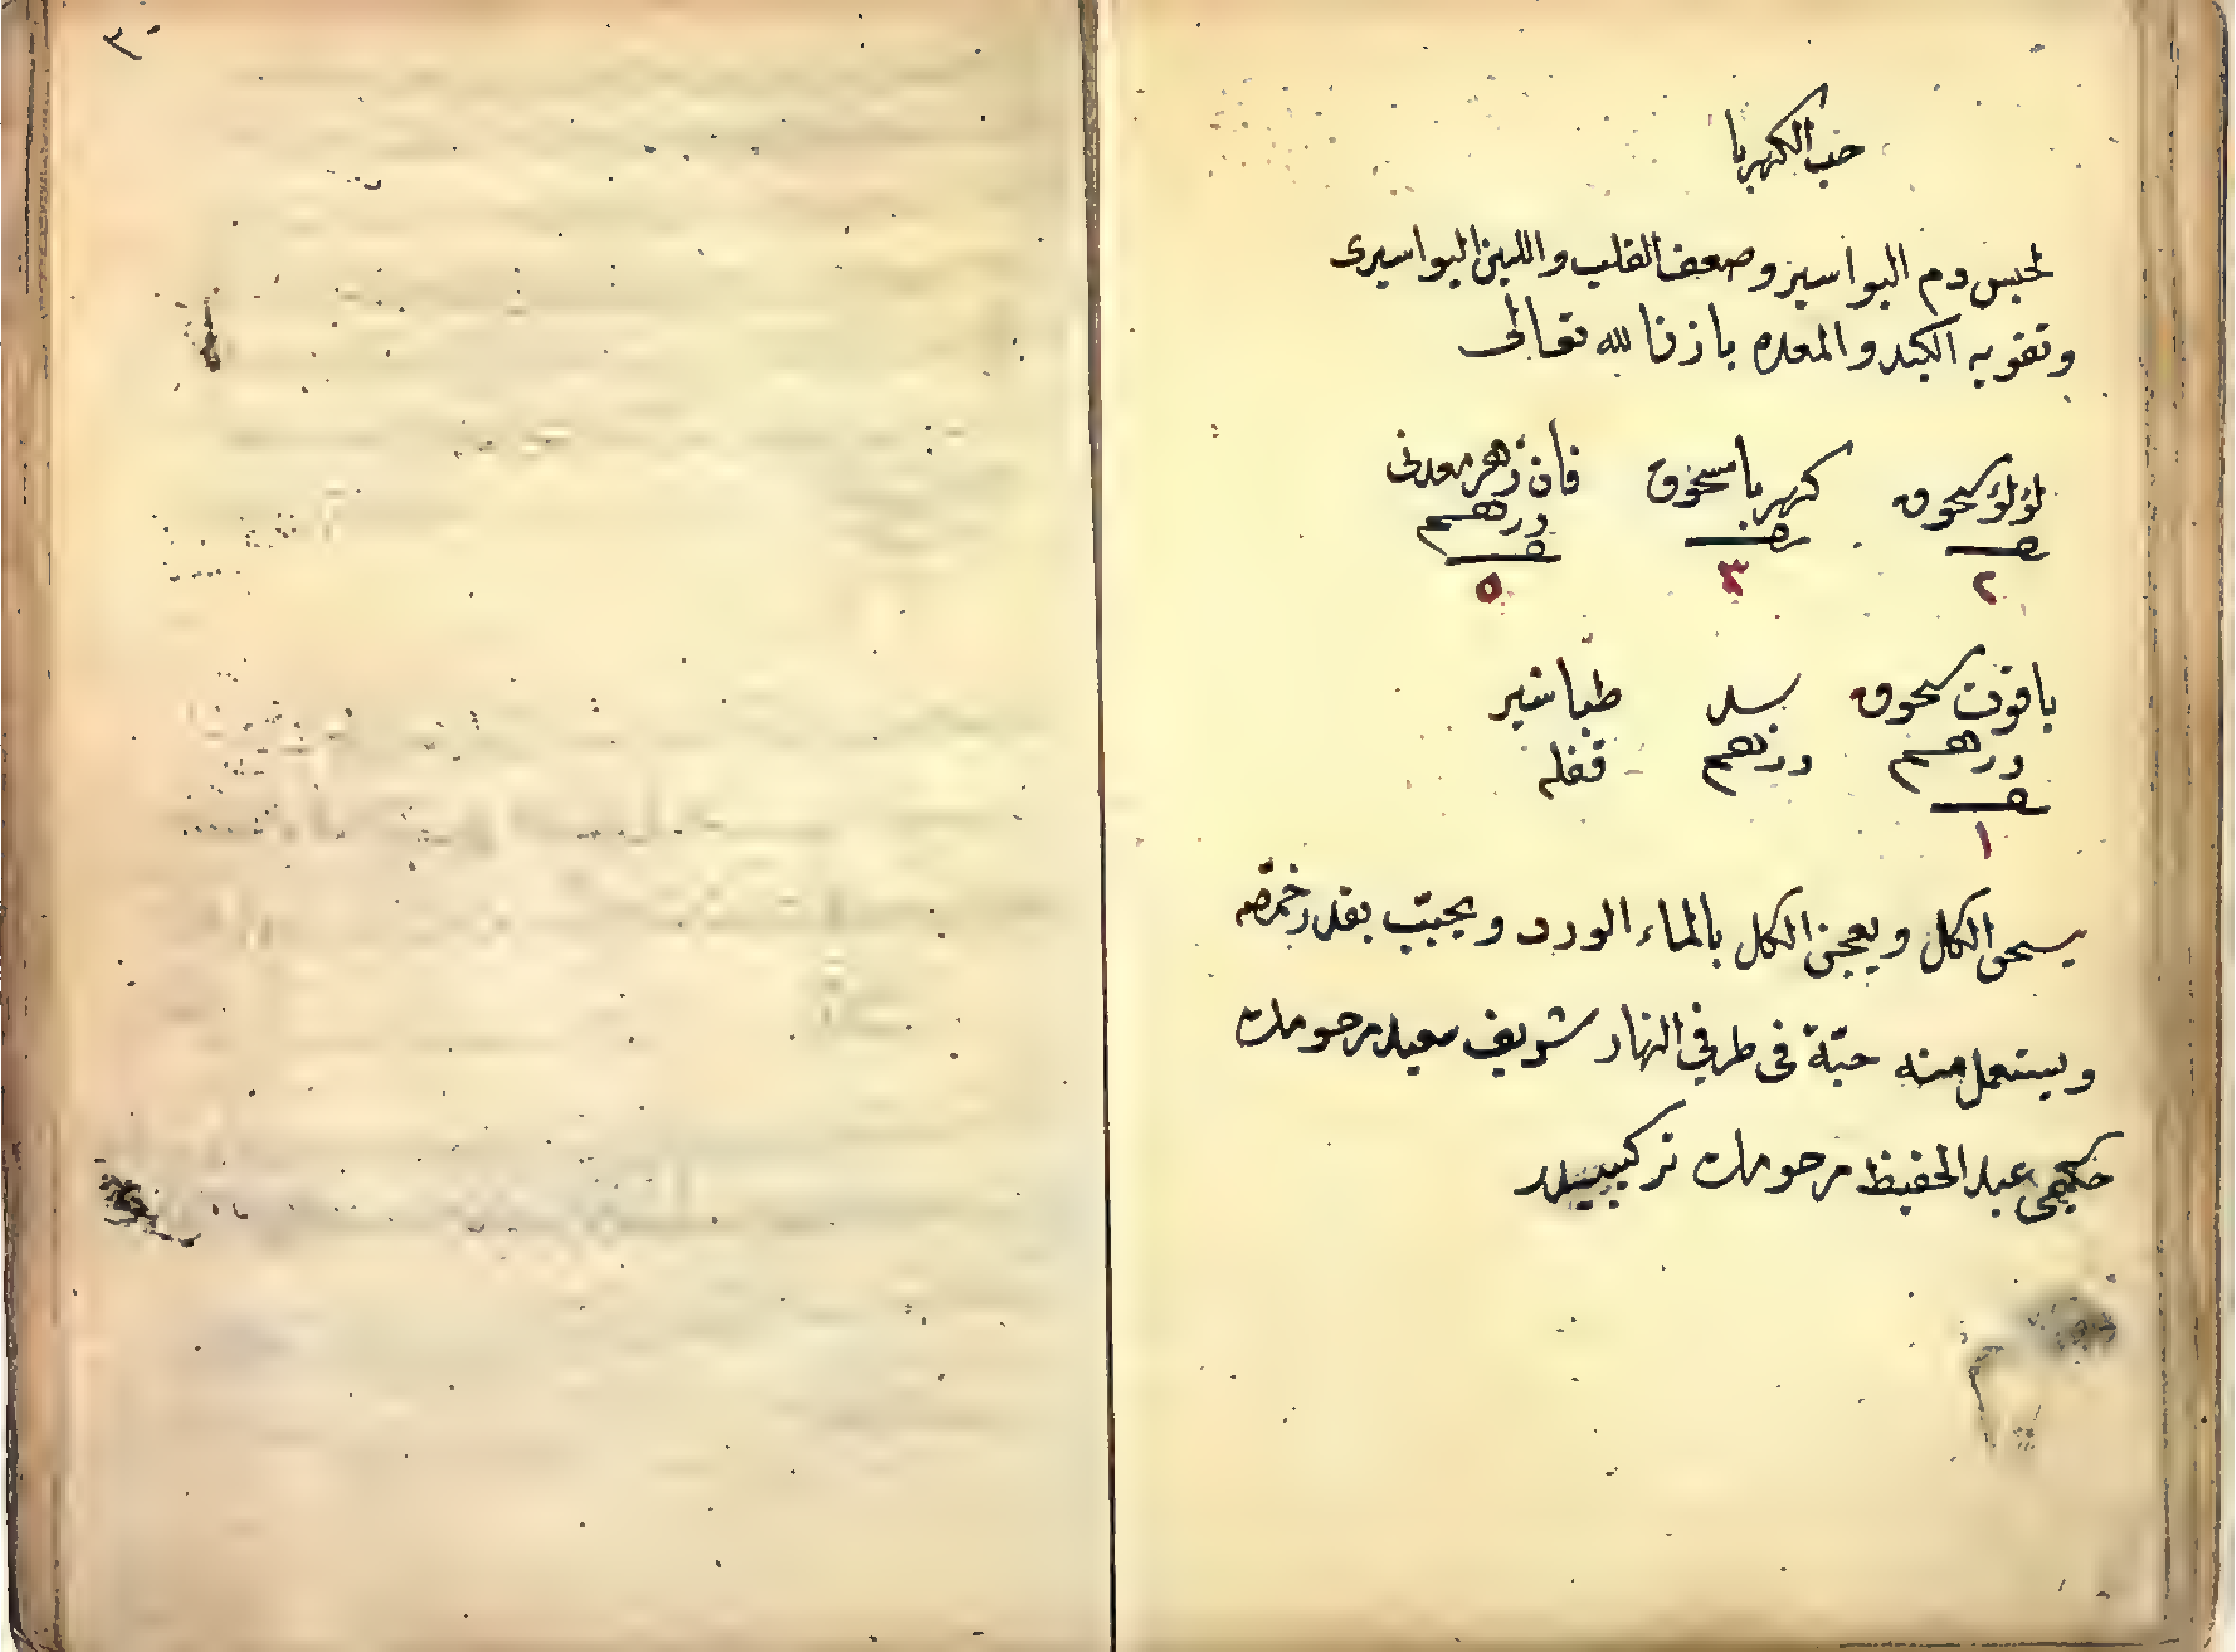 حب الكهربا
لحبس دم البواسير وضعف القلب واللين البواسيرى
وتقويه الكبد والمعده باذن الله تعالى
لؤلؤ سحوق كهربا مسحوق فان زهر معدنى
درهم
٢ ٣ ٥
ياقوت سحوق بسد طباشير
درهم درهم قفله
١
يسحق الكل ويعجن الكل بالماء الورد ويحبب بقدر حمّصه
ويستعمل منه حبّة فى طرفي النهار شريف سعيد مرحومك
حكيمى عبد الحفيظ مرحومك تركيبيدر
٣٠